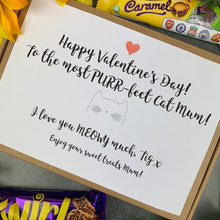 Caramel
Happy Valentine's Day!
To the most PURR-fect Cat Mum!
I love you MEOWY much, Tig x
Enjoy your sweet treats Mum!
Twirl